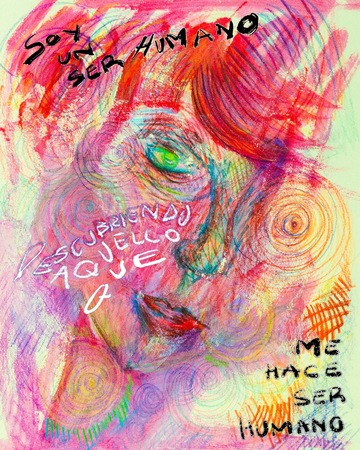 SOY
UN
SER HUMANO
DESCUBRIENDO
AQUELLO
Q
ME
HACE
SER
HUMANO